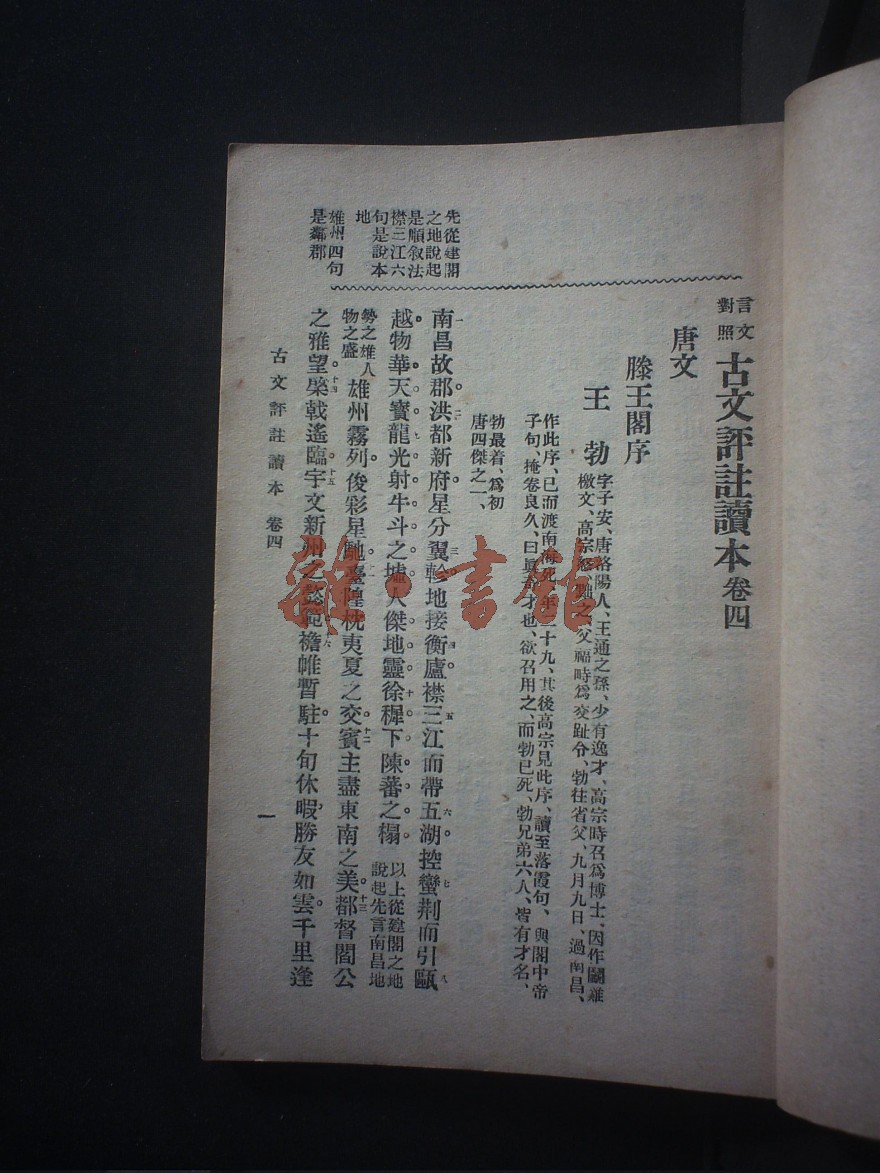 言文對照 古文評註讀本 卷四
唐文
滕王閣序
王勃
字子安、唐洛陽人、王通之孫、少有逸才、高宗時召爲博士、因作鬬雞
檄文、高宗怒黜之、父福畤爲交趾令、勃往省父、九月九日、過南昌、
作此序、已而渡南海死、年二十九、其後高宗見此序、讀至落霞句、與閣中帝
子句、掩卷良久、曰眞奇才也、欲召用之、而勃已死、勃兄弟六人、皆有才名、
勃最着、爲初
唐四傑之一、
南昌故郡。洪都新府。星分翼軫。地接衡廬。襟三江而帶五湖。控蠻荆而引甌
越。物華天寶。龍光射牛斗之墟。人傑地靈。徐穉下陳蕃之榻。以上從建閣之地說起先言南昌地
勢之雄人物之盛雄州霧列。俊彩星馳。臺隍枕夷夏之交。賓主盡東南之美。都督閻公
之雅望。棨戟遙臨。宇文新州之懿範。襜帷暫駐。十旬休暇。勝友如雲。千里逢
先從建閣
之地說起
是順敘法
襟三江六
句是說本
地
雄州四句
是鄰郡
古文評註讀本 卷四
一
雜·書館